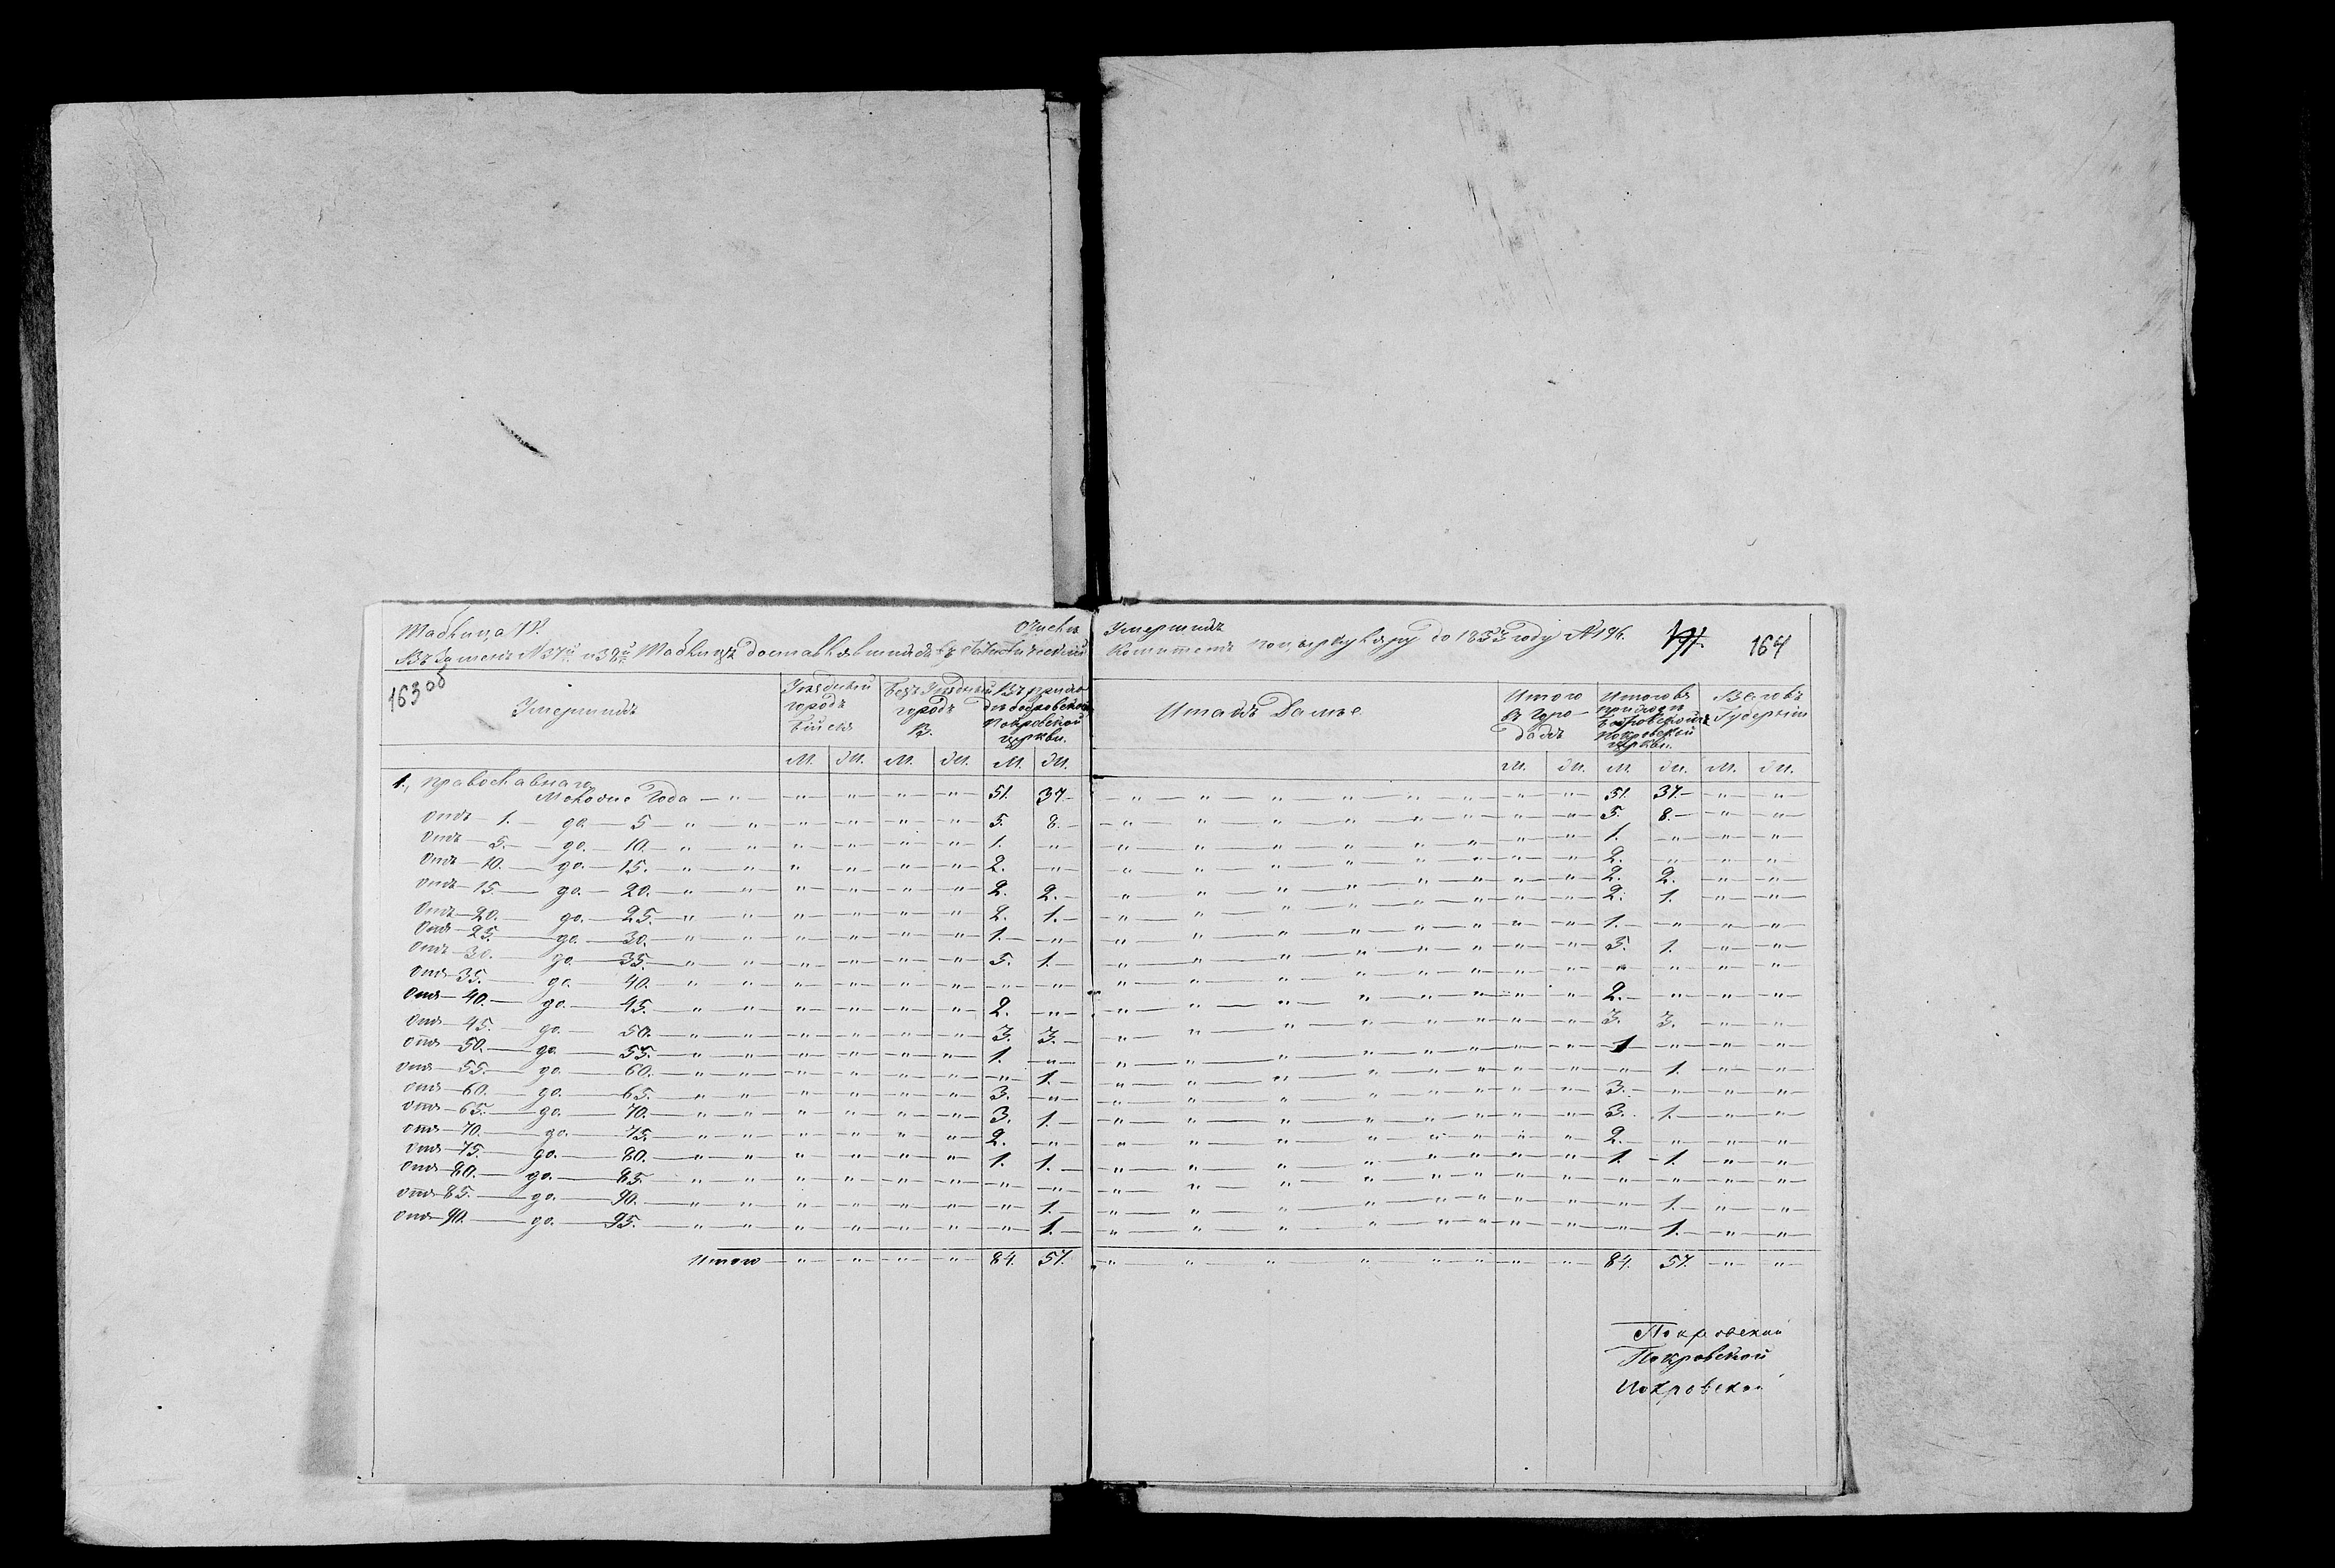 Таблица IV. О числѣ
Въ замѣнъ № 37й и 38й Таблицъ доставлявшихся въ Статистический
163 об
Умершихъ
Уѣздный городъ Бийскъ
Безъ Уѣздный городъ В.
Въ приходѣ Покровской церкви.
М. Ж. М. Ж. М. Ж.
1., Православнаго
Моложе Года — " — " — " — " — " — " — 51. 37.
Отъ — 1. — до. — 5 — " — " — " — " — " — " — 5. 8. —
Отъ — 5. — до. — 10. — " — " — " — " — " — " — 1. — " —
Отъ — 10. — до. — 15. — " — " — " — " — " — " — 2. — " —
Отъ — 15. — до. — 20. — " — " — " — " — " — " — 2. 2. —
Отъ — 20. — до. — 25. — " — " — " — " — " — " — 2. 1. —
Отъ — 25. — до. — 30. — " — " — " — " — " — " — 1. — " —
Отъ — 30. — до. — 35. — " — " — " — " — " — " — 5. 1. —
Отъ — 35. — до. — 40. — " — " — " — " — " — " — " — " —
Отъ — 40. — до. — 45. — " — " — " — " — " — " — 2. — " —
Отъ — 45. — до. — 50. — " — " — " — " — " — " — 3. 3. —
Отъ — 50. — до. — 55. — " — " — " — " — " — " — 1. — " —
Отъ — 55. — до. — 60. — " — " — " — " — " — " — " — 1. —
Отъ — 60. — до. — 65. — " — " — " — " — " — " — 3. — " —
Отъ — 65. — до. — 70. — " — " — " — " — " — " — 3. 1. —
Отъ — 70. — до. — 75. — " — " — " — " — " — " — 2. — " —
Отъ — 75. — до. — 80. — " — " — " — " — " — " — 1. 1. —
Отъ — 80. — до. — 85. — " — " — " — " — " — " — " — " —
Отъ — 85. — до. — 90. — " — " — " — " — " — " — " — 1. —
Отъ — 90. — до. — 95. — " — " — " — " — " — " — " — 1. —
Итого — " — " — " — " — 84. 57.
Умершихъ
Комитетъ по циркуляру до 1853 году № 196. 164
Итакъ Далѣе
Итого въ Городахъ
Итого въ приходѣ Покровской церкви.
Всего въ Губерніи
М. Ж. М. Ж. М. Ж.
" — " — 51. 37. — " — "
" — " — 5. 8. — " — "
" — " — 1. — " — " — "
" — " — 2. — " — " — "
" — " — 2. 2. — " — "
" — " — 2. 1. — " — "
" — " — 1. — " — " — "
" — " — 5. 1. — " — "
" — " — " — " — " — "
" — " — 2. — " — " — "
" — " — 3. 3. — " — "
" — " — 1 — " — " — "
" — " — " — 1. — " — "
" — " — 3. — " — " — "
" — " — 3. 1. — " — "
" — " — 2. — " — " — "
" — " — 1. — 1. — " — "
" — " — " — " — " — "
" — " — " — 1. — " — "
" — " — " — 1. — " — "
" — " — 84. 57. — " — "
Покровский
Покровской
Покровской